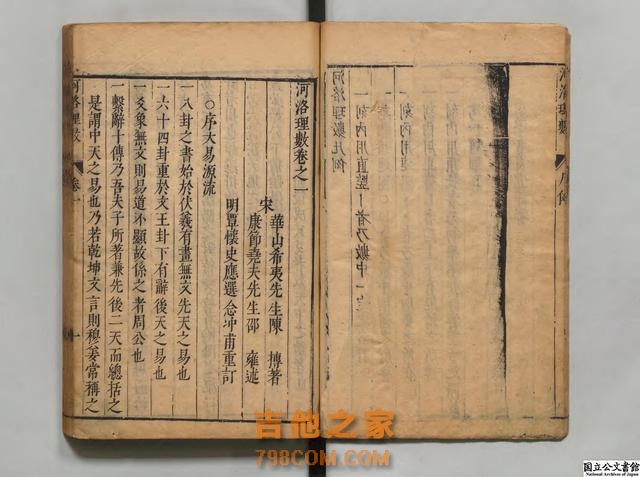 河洛理數
一刻內用
一刻內用直豎丨者乃數中一
河洛理數凡例
河洛理數卷之一
宋
華山希夷先生陳 摶著
康節堯夫先生邵 雍述
明覃懷史應選念冲甫重訂
○序大易源流
一八卦之書始於伏羲有畫無文先天之易也
一六十四卦重於文王卦下有辭後天之易也
一爻象無文則易道不顯故係之者周公也
一繫辭十傳乃吾夫子所著兼先後二天而總括之
是謂中天之易也乃若乾坤文言則穆姜常稱之
河洛理數
卷一
一
吉他之家
798COM.COM
国立公文書館
National Archives of Japan